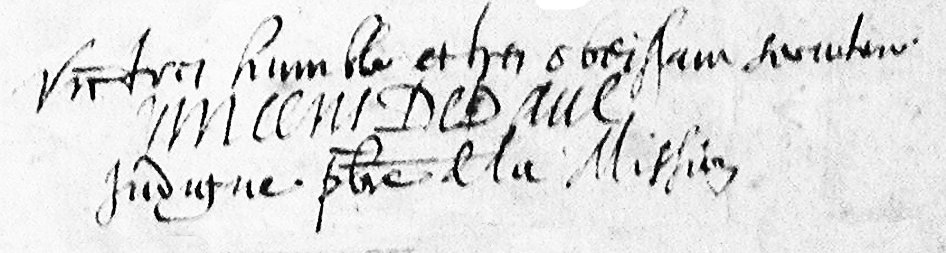 Vre tres humble et tres obeissant serviteur
VINCENT DEPAUL
indigne pbre de la Mission